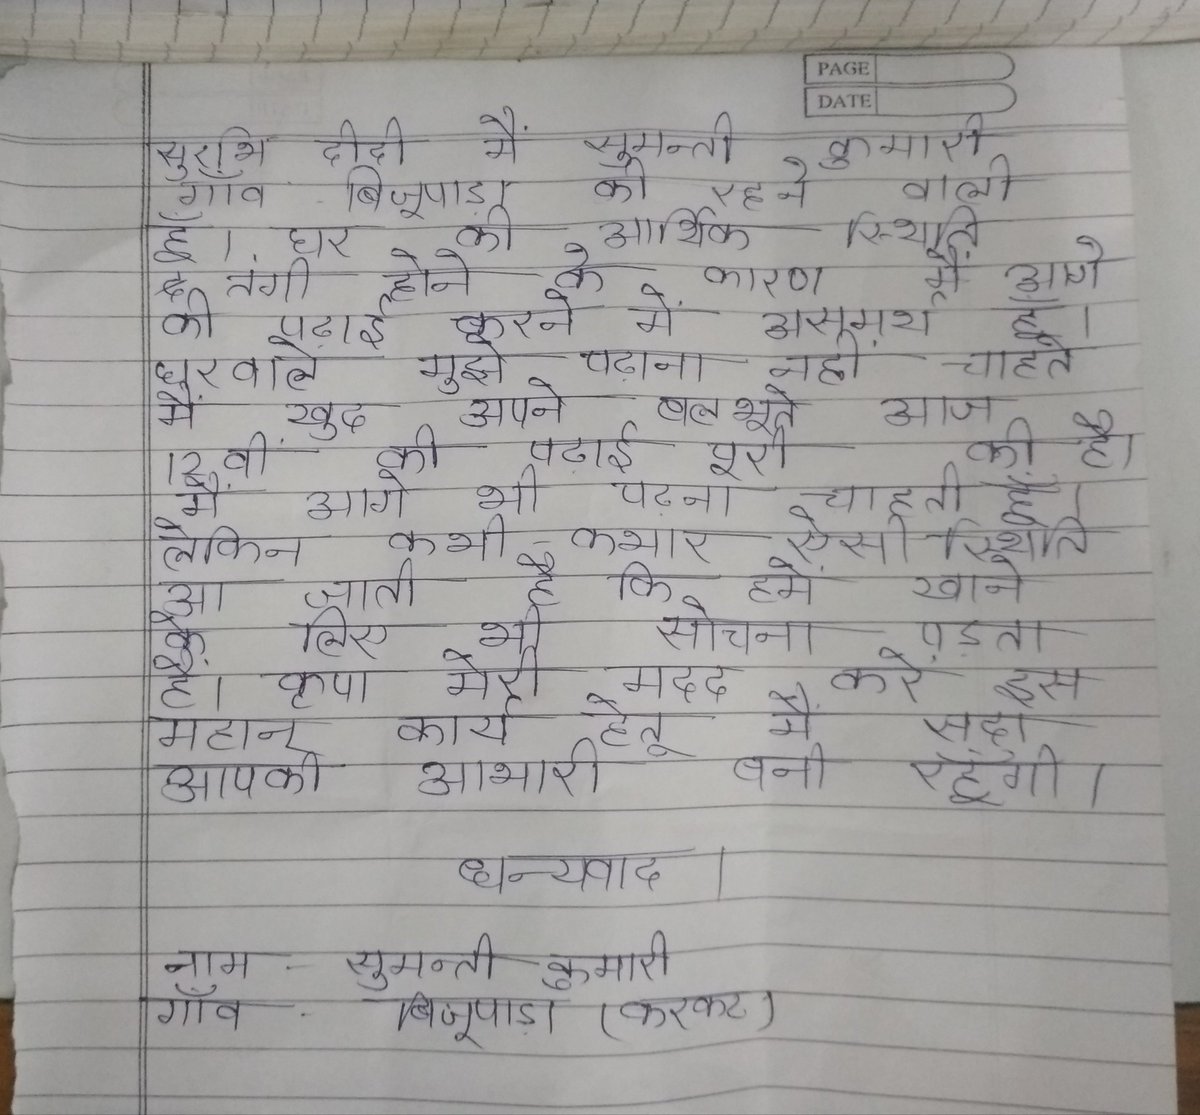 PAGE
DATE
सुरभि दीदी मैं सुमन्ती कुमारी
गाँव बिजूपाड़ा की रहने वाली
हूँ। घर की आर्थिक स्थिति
तंगी होने के कारण मैं आगे
की पढ़ाई करने में असमर्थ हूँ।
घरवाले मुझे पढ़ाना नहीं चाहते
मैं खुद अपने बलभूते आज
12वीं की पढ़ाई पूरी की है।
मैं आगे भी पढ़ना चाहती हूँ।
लेकिन कभी-कभार ऐसी स्थिति
आ जाती है कि हमें खाने
के लिए भी सोचना पड़ता
है। कृपा मेरी मदद करें इस
महान कार्य हेतू मैं सदा
आपकी आभारी बनी रहूँगी।
धन्यवाद।
नाम - सुमन्ती कुमारी
गाँव - बिजूपाड़ा (करकट)